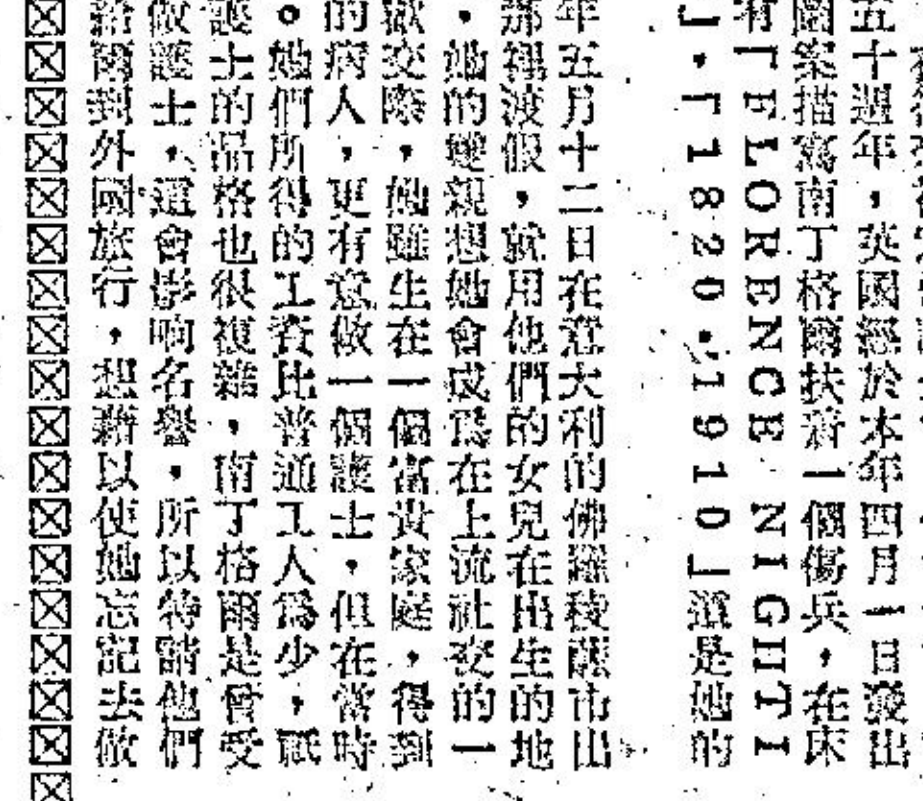 五十週年，英國經於本年四月一日發出
圖案描寫南丁格爾扶着一個傷兵，在床
有「FLORENCE NIGHTI
」，「1820，1910」這是她的
年五月十二日在意大利的佛羅稜薩市出
那裡渡假，就用他們的女兒在出生的地
，她的雙親想她會成爲在上流社交的一
歡交際，她雖生在一個富貴家庭，得到
的病人，更有意做一個護士，但在當時
。她們所得的工資比普通工人爲少，祇
護士的品格也很複雜，南丁格爾是曾受
做護士，還會影响名譽，所以特請他們
格爾到外國旅行，想藉以使她忘記去做